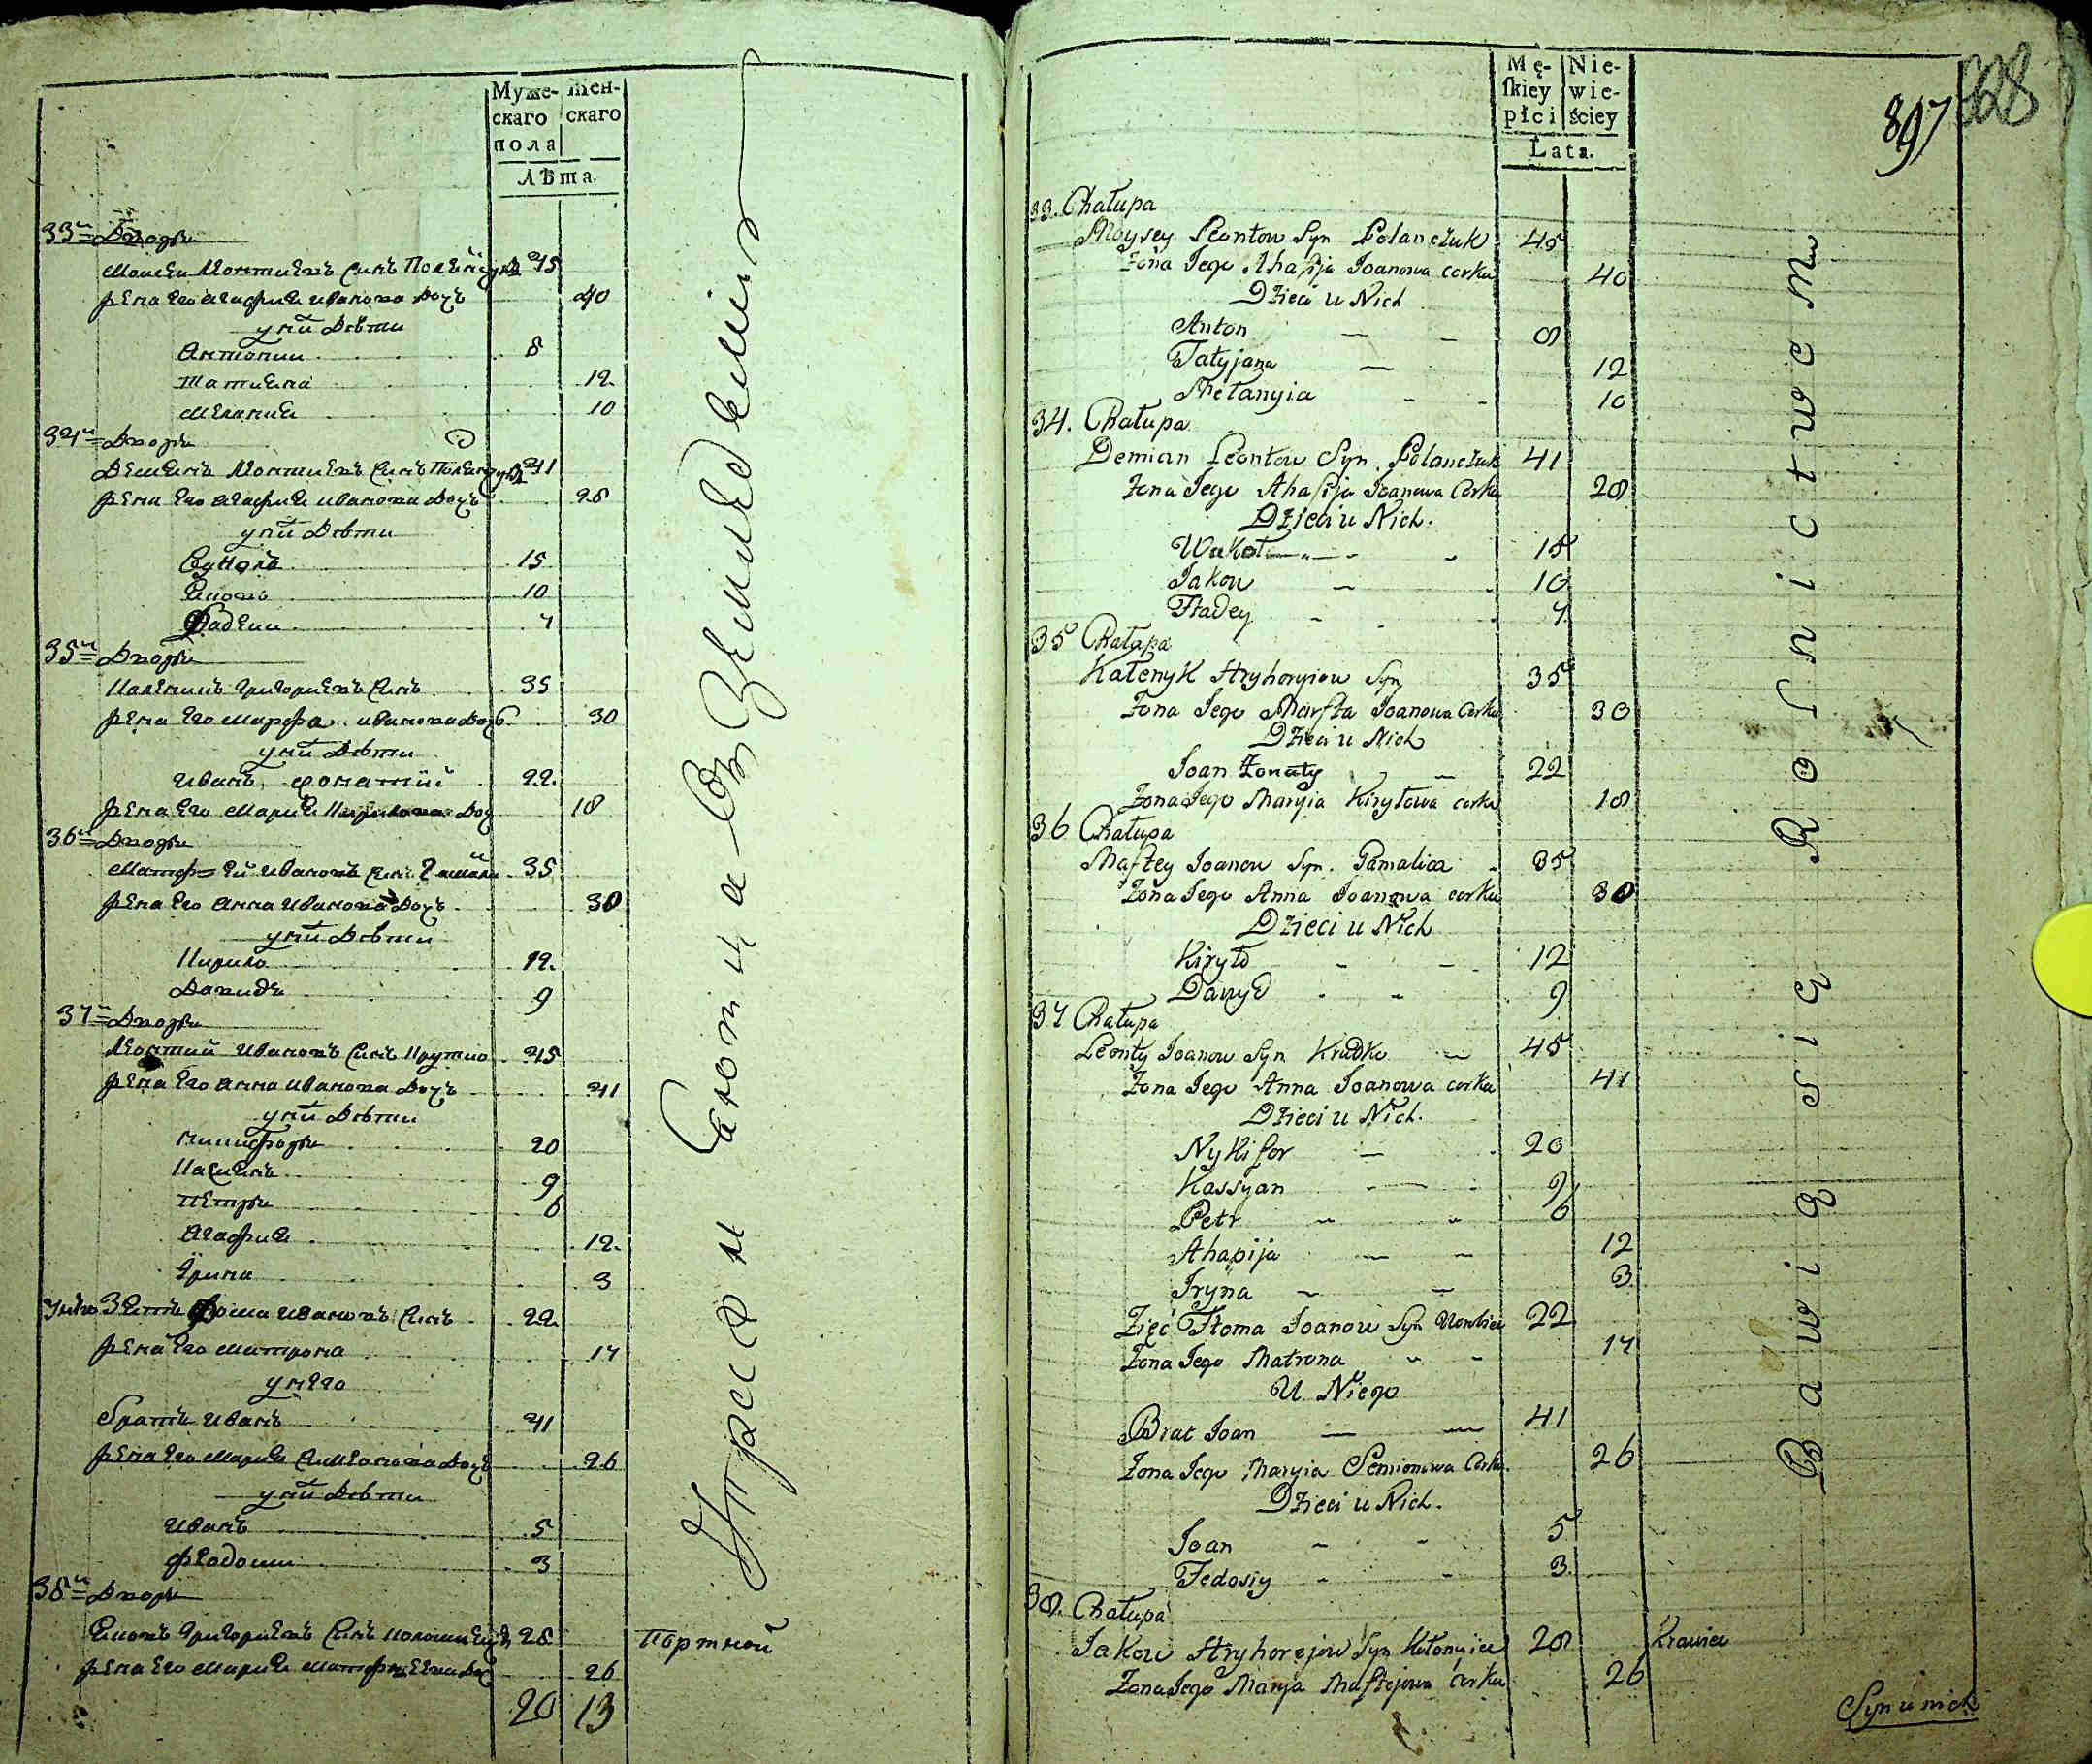 Муже-
скаго
пола
Жен-
скаго
лѣта.
33й Дворъ
Моисей Леонтиевъ сынъ Поленчукъ 45
жена его агафия иванова дочь 40
у них дѣти
Антоний 8
Татиена 12.
Мелания 10
34й Дворъ
Демиенъ Леонтиевъ сынъ Поленчукъ 41
жена его агафия иванова дочь 28
у них дѣти
15
Ековъ 10
Фадеий 7
35й Дворъ
Каленикъ григориевъ сынъ 35
жена его марфа иванова дочь 30
у них дѣти
иванъ, жонатий 22.
жена его мария Кирилова доч 18
36й Дворъ
Матфей ивановъ сынъ 35
жена его анна иванова дочь 30
у них дѣти
Кирило 12.
Давидъ 9
37й Дворъ
Леонтий ивановъ сынъ Крутко 45
жена его анна иванова дочь 41
у них дѣти
никифоръ 20
Касиенъ 9
петръ 6
Агафия 12.
Ирина 3
у него Зеть Фома ивановъ сынъ 22.
жена его матрона 17
у него
братъ иванъ 41
жена его мария Симеонова дочь 26
у них дѣти
иванъ 5
феодосий 3
38й Дворъ
Ековъ григориевъ сынъ 28 портной
жена его мария матфеева доч 26
20 13
Упраж
Mę-
ſkiey
płci
Nie-
wie-
ściey
Lata.
897
628
33. Chałupa
Moysey Leontow Syn Polanczuk 45
Żona Jego Ahafija Joanowa corka 40
Dzieci u Nich
Anton 8
Tatyjana 12
Mełanyia 10
34. Chałupa
Demian Leontow Syn. Polanczuk 41
Żona Jego Ahafija Joanowa Corka 28
Dzieci u Nich.
Wukoł 15
Jakow 10
Ftadey 7
35 Chałupa
Kałenyk Hryhoryiow Syn 35
Żona Jego Marfta Joanowa Corka 30
Dzieci u Nich
Joan Żonaty 22
Żona Jego Maryia Kiryłowa corka 18
36 Chałupa
Maftey Joanow Syn. Pamalica 35
Żona Jego Anna Joanowa corka 30
Dzieci u Nich
Kiryło 12
Dawyd 9
37 Chałupa
Leonty Joanow Syn Krudko 45
Żona Jego Anna Joanowa corka 41
Dzieci u Nich.
Nykifor 20
Kassyan 9
Petr 6
Ahapija 12
Iryna 3
Zięć Ftoma Joanow Syn 22
Żona Jego Matrona 17
U Niego
Brat Joan 41
Żona Jego Maryia Semionowa Corka 26
Dzieci u Nich.
Joan 5
Fedosiy 3
38. Chałupa
Jakow Hryhorejow Syn Kołomyiec 28 Krawiec
Żona Jego Marya Maftejowa Corka 26
Bawią się Rolnictwem
Syn u nich